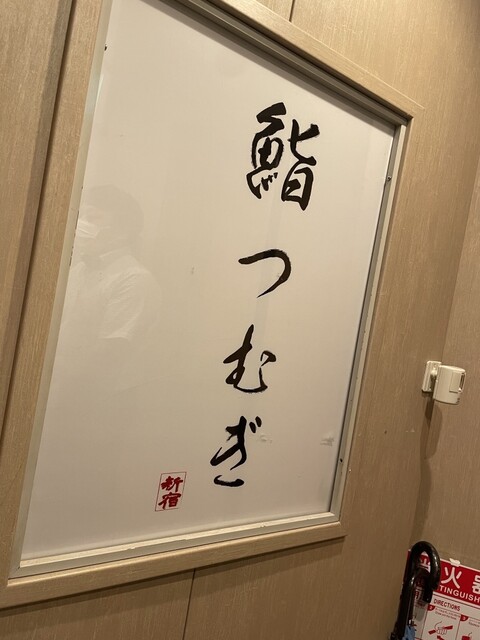 鮨つむぎ
新宿
火器
TINGUISH
DIRECTIONS